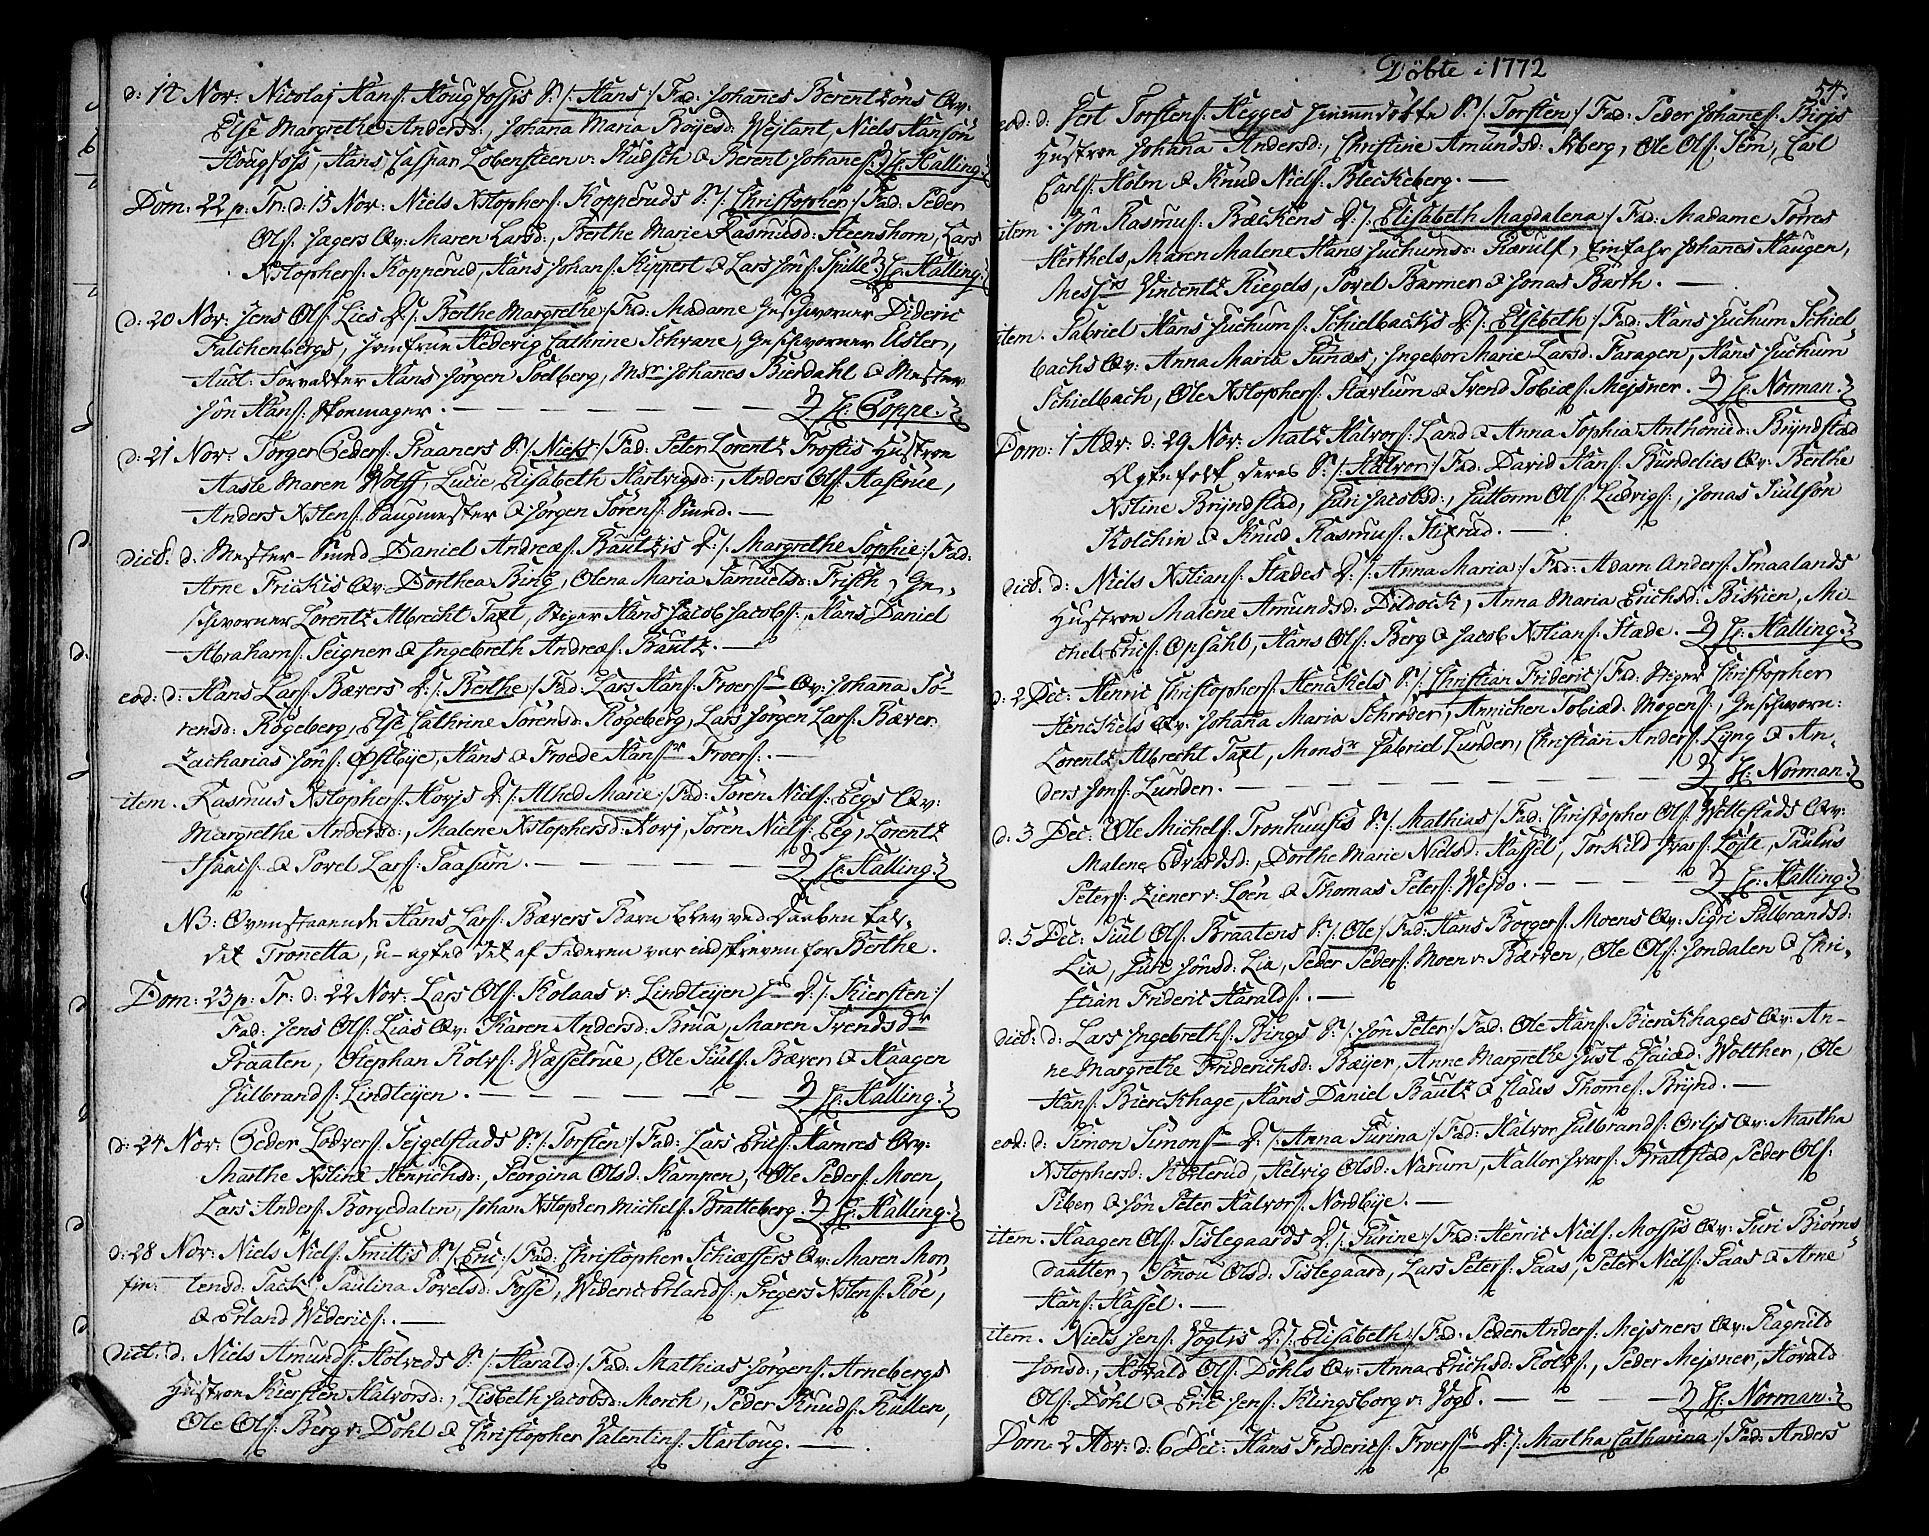 d: 14 Nor: Nicolaj Hansſ: Hougfossis S: /: Hans :/ Fad: Johannes Berentzöns Qv:
Else Margrethe Andersd:, Johana Maria Böyesd: Wejlant, Niels Hansön
Hougfoss, Hans Caspar Lobensteen v: Hüdsch & Berent Johanesſ: H: Halling.
Dom: 22 p: Tr: d: 15 Nov: Niels Xstophersſ: Kopperuds S: /: Christopher :/ Fad: Peder
Olsſ: Jagers Qv: Maren Larsd:, Berthe Marie Rasmusd: Steenshorn, Lars
Xstophersſ: Kopperud, Hans Johansſ: Kippert & Lars Jönsſ: Spille. H: Halling.
d: 20 Nov: Jens Olsſ: Lies D: /: Berthe Margrethe :/ Fad: Madame Geschworner Dideric
Falchenbergs, Jomfrue Hedevig Cathrine Schrane, Geschworner Elster,
Aut: Forvalter Hans Jörgen Soelberg, Msr: Johanes Bierdahl & Mester
Jön Hansſ: Skomager. — H: Poppe.
d: 21 Nov: Torger Pedersſ: Praaners S: /: Niels :/ Fad: Peter Lorentz Trostis Hustrue
Aasle Maren Wolff, Lucie Elisabeth Hartvigsd:, Anders Olsſ: Aaserue,
Anders Xstensſ: Saugmester & Jörgen Sörensſ: Smed. —
dict: d: Mester-Smed Daniel Andreæsſ: Bautzis D: /: Margrethe Sophie :/ Fad:
Arne Frickis Qv: Dorthea Bing, Olena Maria Samuelsd: Frisch, Ge-
schworner Lorentz Albrecht Taxt, Stiger Hans Jacob Jacobsſ:, Hans Daniel
Abrahamsſ: Seigner & Ingebreth Andreæsſ: Bautz. —
eod: d: Hans Larsſ: Bævers D: /: Berthe :/ Fad: Lars Hansſ: Froersſ: Qv: Johanna Sö-
rensd: Rögeberg, Else Cathrine Sörensd: Rögeberg, Lars Jörgen Larsſ: Bæver
Zacharias Jönsſ: Opstbÿe, Hans & Froede Hansſr Froersſ:. —
item. Rasmus Xstophersſ: Korjs D: /: Alhed Marie :/ Fad: Sören Nielsſ: Eegs Qv:
Margrethe Andersd:, Malene Xstophersd: Korj, Sören Nielsſ: Eeg, Lorentz
Isaacsſ: & Povel Larsſ: Paasum. — H: Halling.
NB: Ovenstaaende Hans Larsſ: Bævers Barn blev ved Daaben kal-
det Tronetta, u-agted det af Faderen var indskreven for Berthe.
Dom: 23 p: Tr: d: 22 Nov: Lars Olsſ: Kolaas v: Lindteÿen D: /: Kiersten :/
Fad: Jens Olsſ: Lias Qv: Karen Andersd: Brua, Maren Svendsdr
Praaten, Stephan Rolvsſ: Wassetrue, Ole Siulsſ: Bæver & Haagen
Gulbrandsſ: Lindteÿen. — H: Halling.
d: 24 Nov: Peder Lodversſ: Tejgelstads S: /: Torsten :/ Fad: Lars Ericsſ: Hamres Qv:
Marthe Xstine Henrichsd:, Georgina Olsd: Kampen, Ole Pedersſ: Moen,
Lars Andersſ: Borgedalen, Johan Xstopher Michelsſ: Bratteberg. H: Halling.
d: 28 Nov: Niels Nielsſ: Smittis S: /: Eric :/ Fad: Christopher Schiæffers Qv: Maren Mor-
tensd: Tack, Paulina Povelsd: Fosse, Wideric Erlandsſ:, Gregers Xstensſ: Röe,
& Erland Widericsſ:. —
dict: d: Niels Amundsſ: Kolveds S: /: Harald :/ Fad: Mathias Jörgensſ: Arnebergs
Hustrue Kiersten Halvorsd:, Lisbeth Jacobsd: Morch, Peder Knudsſ: Kullen,
Ole Olsſ: Berg v: Dohl & Christopher Valentinsſ: Hartoug. —
Döbte i 1772
54.
eod: d: Gert Torstensſ: Hegges S: /: Torsten :/ Fad: Peder Johanesſ: Birjs
Hustrue Johana Andersd:, Christine Amundsd: Kberg, Ole Olsſ: Sem, Carl
Carlsſ: Holm & Knud Nielsſ: Bleckeberg. —
item. Jön Rasmusſ: Bæckens D: /: Elisabeth Magdalena :/ Fad: Madame Torres
Herthels, Maren Malene Hans Juchumsd: Karulf, Einfahr Johanes Haugen,
Messrs Vincentz Riegels, Povel Barmer & Jonas Barth. —
item. Gabriel Hans Juchumsſ: Schielbachs D: /: Elsebeth :/ Fad: Hans Juchum Schiel-
bachs Qv: Anna Maria Funæs, Ingebor Marie Larsd: Faragen, Hans Juchum
Schielbach, Ole Xstophersſ: Starlum & Svend Tobiæsſ: Mejsner. H: Norman.
Dom: 1 Adv: d: 29 Nov: Matz Halvorsſ: Land & Anna Sophia Anthonied: Brÿndstad
Egtefolk deres S: /: Halvor :/ Fad: David Hansſ: Bundelies Qv: Berthe
Xstine Brÿndstad, Guri Jacobsd:, Guttorm Olsſ: Ludvigsſ:, Jonas Siulsön
Kolchin & Knud Rasmusſ: Stixrud. —
dict: d: Niels Xstiansſ: Stædes D: /: Anna Maria :/ Fad: Adam Andersſ: Smaalands
Hustrue Malene Amundsd: Doldock, Anna Maria Erichsd: Biskien, Mi-
chel Ericsſ: Opsahl, Hans Olsſ: Berg & Jacob Xstiansſ: Stæde. H: Halling.
d: 2 Dec: Henric Christophersſ: Henckels S: /: Christian Frideric :/ Fad: Stiger Christopher
Henckels Qv: Johana Maria Schröder, Annichen Tobiæd: Mogensſ:, Geschworn:
Lorentz Albrecht Taxt, Monsr Gabriel Lunder, Christian Andersſ: Lÿng & An-
ders Jonsſ: Lunder. — H: Norman.
d: 3 Dec: Ole Michelsſ: Tronhuusis S: /: Mathias :/ Fad: Christopher Olsſ: Wellestads Qv:
Malene Edvardsd:, Dorthe Marie Nielsd: Hassel, Torkild Ivarsſ: Löÿte, Paulus
Petersſ: Ziener v: Loen & Thomas Petersſ: Wesdo. — H: Halling.
d: 5 Dec: Siul Olsſ: Braatens S: /: Ole :/ Fad: Hans Borgersſ: Moens Qv: Sigri Gulbrandsd:
Lia, Guri Jönsd: Lia, Peder Pedersſ: Moen v: Bærven, Ole Olsſ: Jondalen & Chri-
stian Frideric Haraldsſ:. —
dict: d: Lars Ingebrethsſ: Bings S: /: Jön Peter :/ Fad: Ole Hansſ: Bierckhages Qv: An-
ne Margrethe Friderichsd: Beÿer, Anne Margrethe Just Esaiæd: Wolther, Ole
Hansſ: Bierckhage, Hans Daniel Bautz & Claus Thomesſ: Brÿnd. —
eod: d: Simon Simonsſ: D: /: Anna Gurina :/ Fad: Halvor Gulbrandsſ: Orljs Qv: Martha
Xstophersd: Kolterud, Helvig Olsd: Narum, Hallor Ivarsſ: Brattstad, Peder Olsſ:
Piber & Jön Peter Halvorsſ: Nordbÿe. —
item. Haagen Olsſ: Tislegaards D: /: Gurine :/ Fad: Henric Nielsſ: Mossis Qv: Guri Biörns-
daatter, Gönou Olsd: Tislegaard, Lars Petersſ: Paas, Peter Nielsſ: Paas & Arne
Hansſ: Hassel. —
item. Niels Jensſ: Vogtjs D: /: Elisabeth :/ Fad: Peder Andersſ: Mejsners Qv: Ragnild
Jonsd:, Horald Olsſ: Döhls Qv: Anna Erichsd: Roltsſ:, Peder Mejsner, Horald
Olsſ: Döhl & Eric Jensſ: Klingsborg v: Vogt. — H: Norman.
Dom: 2 Adv: d: 6 Dec: Hans Fridericsſ: Froersſ: D: /: Martha Catharina :/ Fad: Anders